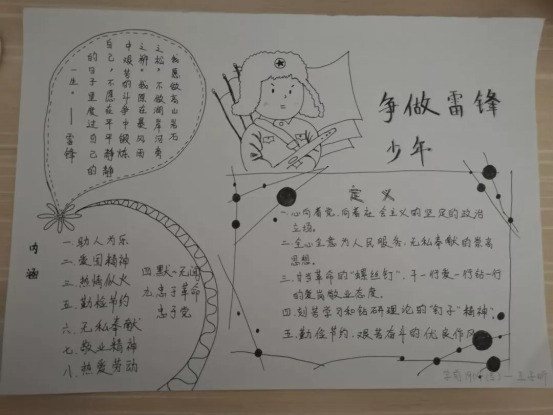 我愿做高山岩石
之松，不做湖岸河旁
之柳。我愿在暴风雨
中艰苦的斗争中锻炼
自己，不愿在平平静静
的日子里度过自己的
一生。——雷锋
争做雷锋
少年
内涵
一.助人为乐
二.爱国精神
三.热情似火
五.勤俭节约
六.无私奉献
七.敬业精神
八.热爱劳动
四.默默无闻
九.忠于革命
忠于党
定义
一.心向着党,向着社会主义的坚定的政治
立场。
二.全心全意为人民服务,无私奉献的崇高
思想。
三.甘当革命的“螺丝钉”,干一行爱一行钻一行
的爱岗敬业态度。
四.刻苦学习和钻研理论的“钉子”精神。
五.勤俭节约、艰苦奋斗的优良作风